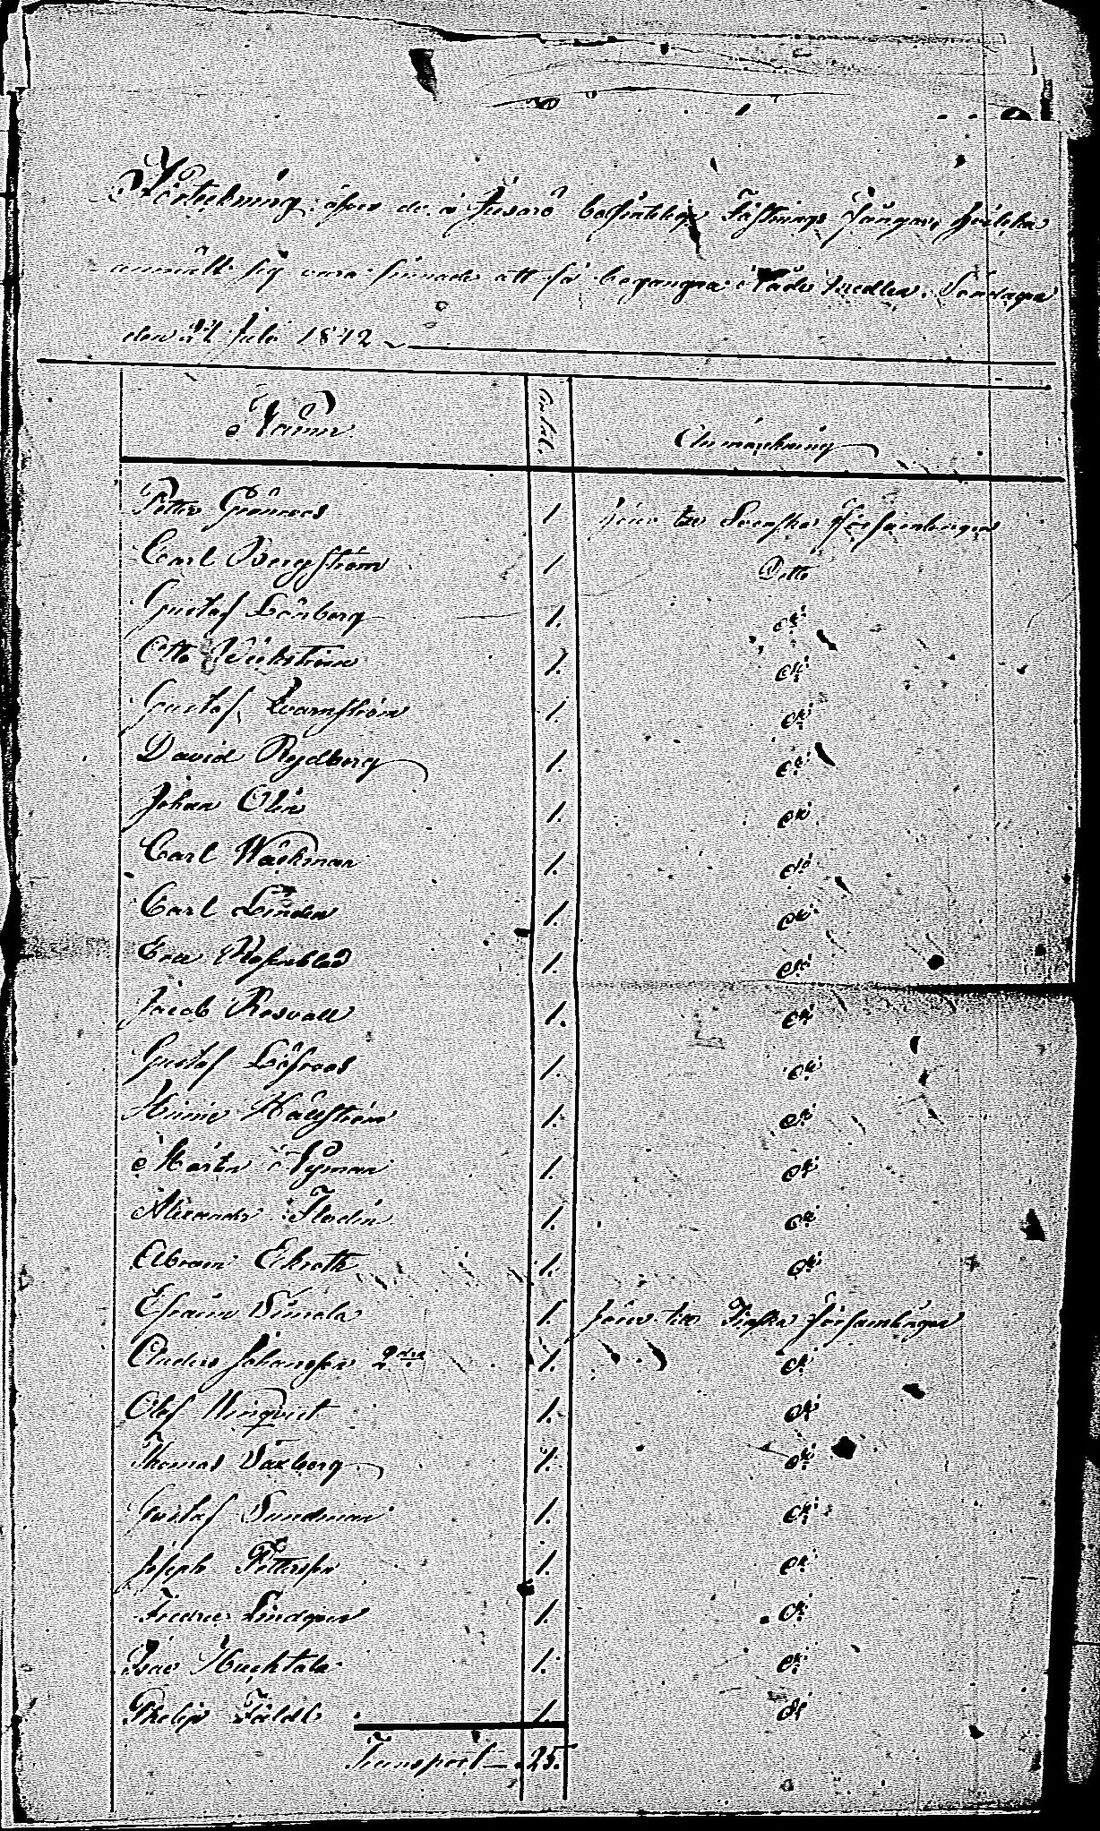 Förtekning öfver de å Svartö befinteliga Fästnings Fångar, hvilka
anmält sig vara sinnade att få begangna Nåde Medlen. Söndagen
den 24 Juli 1842
Namn Antal. Anmärkning
Petter Grönroos 1 hörer till Svenska församlingen
Carl Bergström 1 Ditto
Gustaf Lönberg 1. do
Otto Wickström 1. do
Gustaf Qvarnström 1. do
David Rydberg 1. do
Johan Olin 1. do
Carl Wäckman 1. do
Carl Linden 1. do
Eric Rosenblad 1. do
Jacob Rosvall 1. do
Gustaf Löfroos 1. do
Hällström 1. do
Mårten Nyman 1. do
Alexander Flodin 1. do
Abram Ekroth 1. do
Efraim Simola 1. hörer till Finska församlingen
Anders Johansson 2dre 1. do
Olof Winqvist 1. do
Thomas Saxberg 1. do
Gustaf Sundman 1. do
Joseph Pettersson 1. do
Fredric Lindgren 1. do
Isac Huchtala 1. do
Philip 1. do
Transport 25.